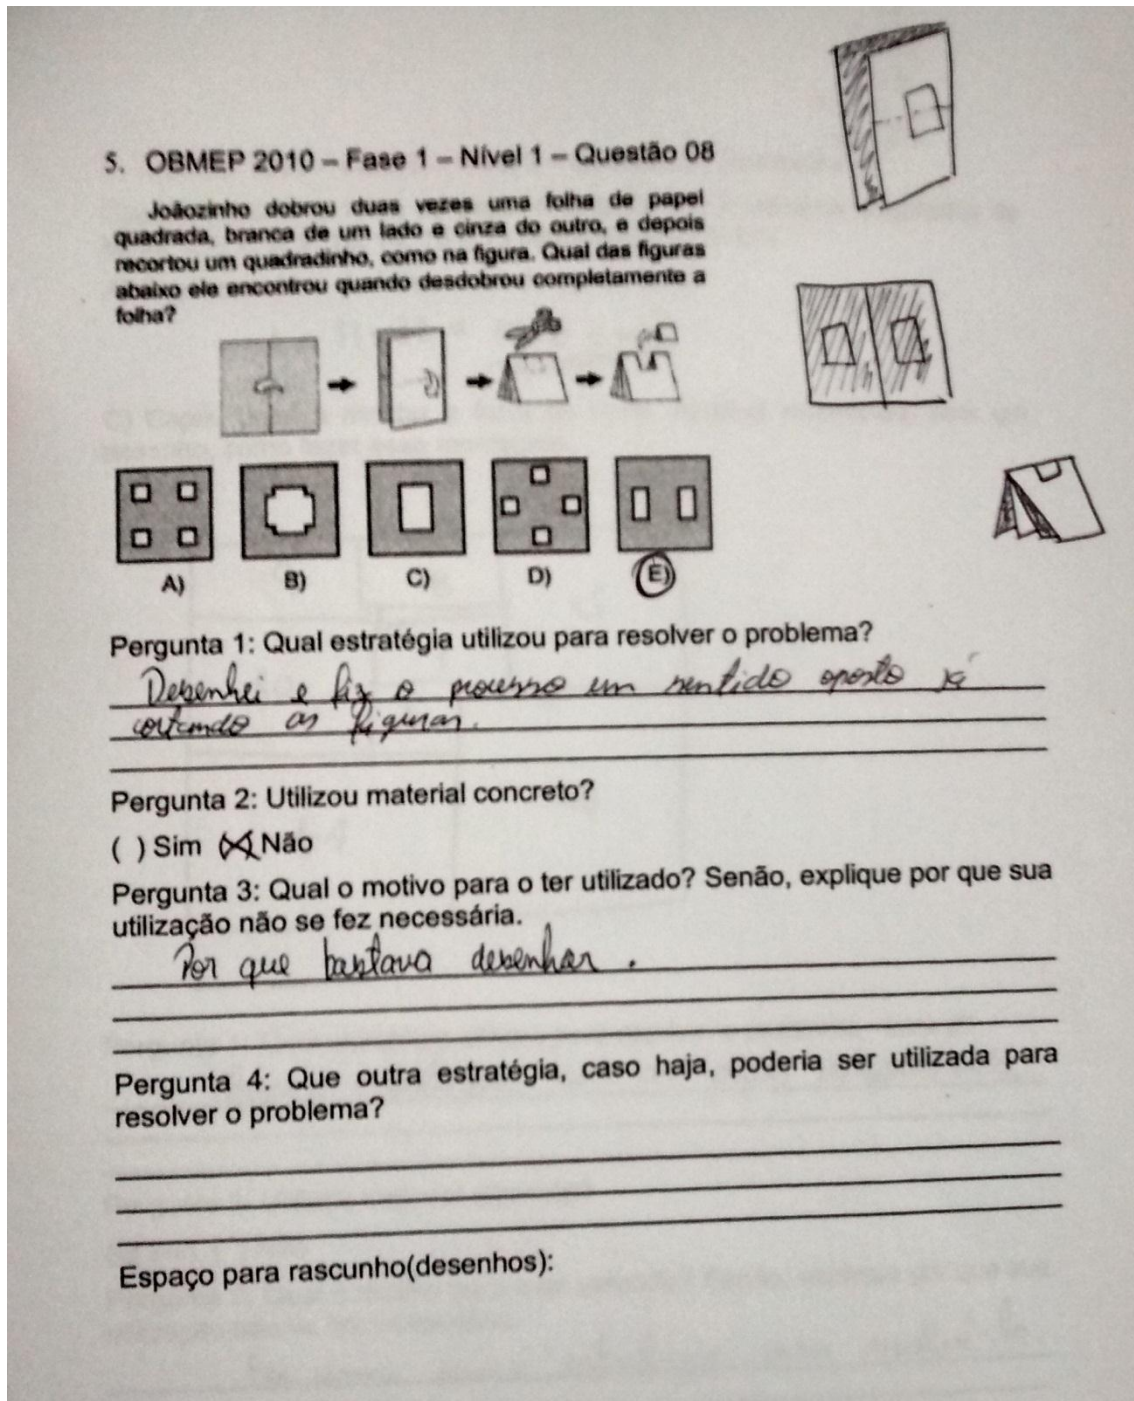 5. OBMEP 2010 – Fase 1 – Nível 1 – Questão 08
Joãozinho dobrou duas vezes uma folha de papel
quadrada, branca de um lado e cinza do outro, e depois
recortou um quadradinho, como na figura. Qual das figuras
abaixo ele encontrou quando desdobrou completamente a
folha?
A) B) C) D) E)
Pergunta 1: Qual estratégia utilizou para resolver o problema?
Desenhei e fiz o processo em sentido oposto já
cortando as figuras.
Pergunta 2: Utilizou material concreto?
( ) Sim (X) Não
Pergunta 3: Qual o motivo para o ter utilizado? Senão, explique por que sua
utilização não se fez necessária.
Por que bastava desenhar.
Pergunta 4: Que outra estratégia, caso haja, poderia ser utilizada para
resolver o problema?
Espaço para rascunho(desenhos):